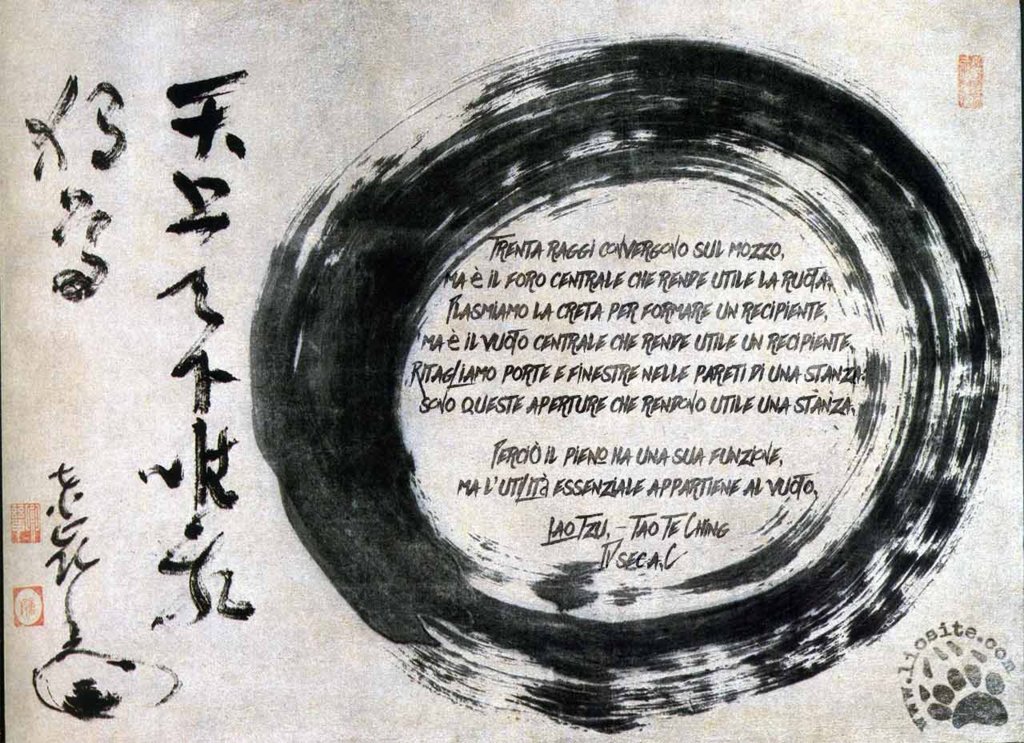 天上天下唯我
獨尊
TRENTA RAGGI CONVERGONO SUL MOZZO,
MA è IL FORO CENTRALE CHE RENDE UTILE LA RUOTA.
PLASMIAMO LA CRETA PER FORMARE UN RECIPIENTE,
MA è IL VUOTO CENTRALE CHE RENDE UTILE UN RECIPIENTE.
RITAGLIAMO PORTE E FINESTRE NELLE PARETI DI UNA STANZA:
SONO QUESTE APERTURE CHE RENDONO UTILE UNA STANZA.
PERCIÒ IL PIENO HA UNA SUA FUNZIONE,
MA L'UTILITà ESSENZIALE APPARTIENE AL VUOTO.
LAO TZU, - TAO TE CHING
IV SEC A.C
www.liosite.com